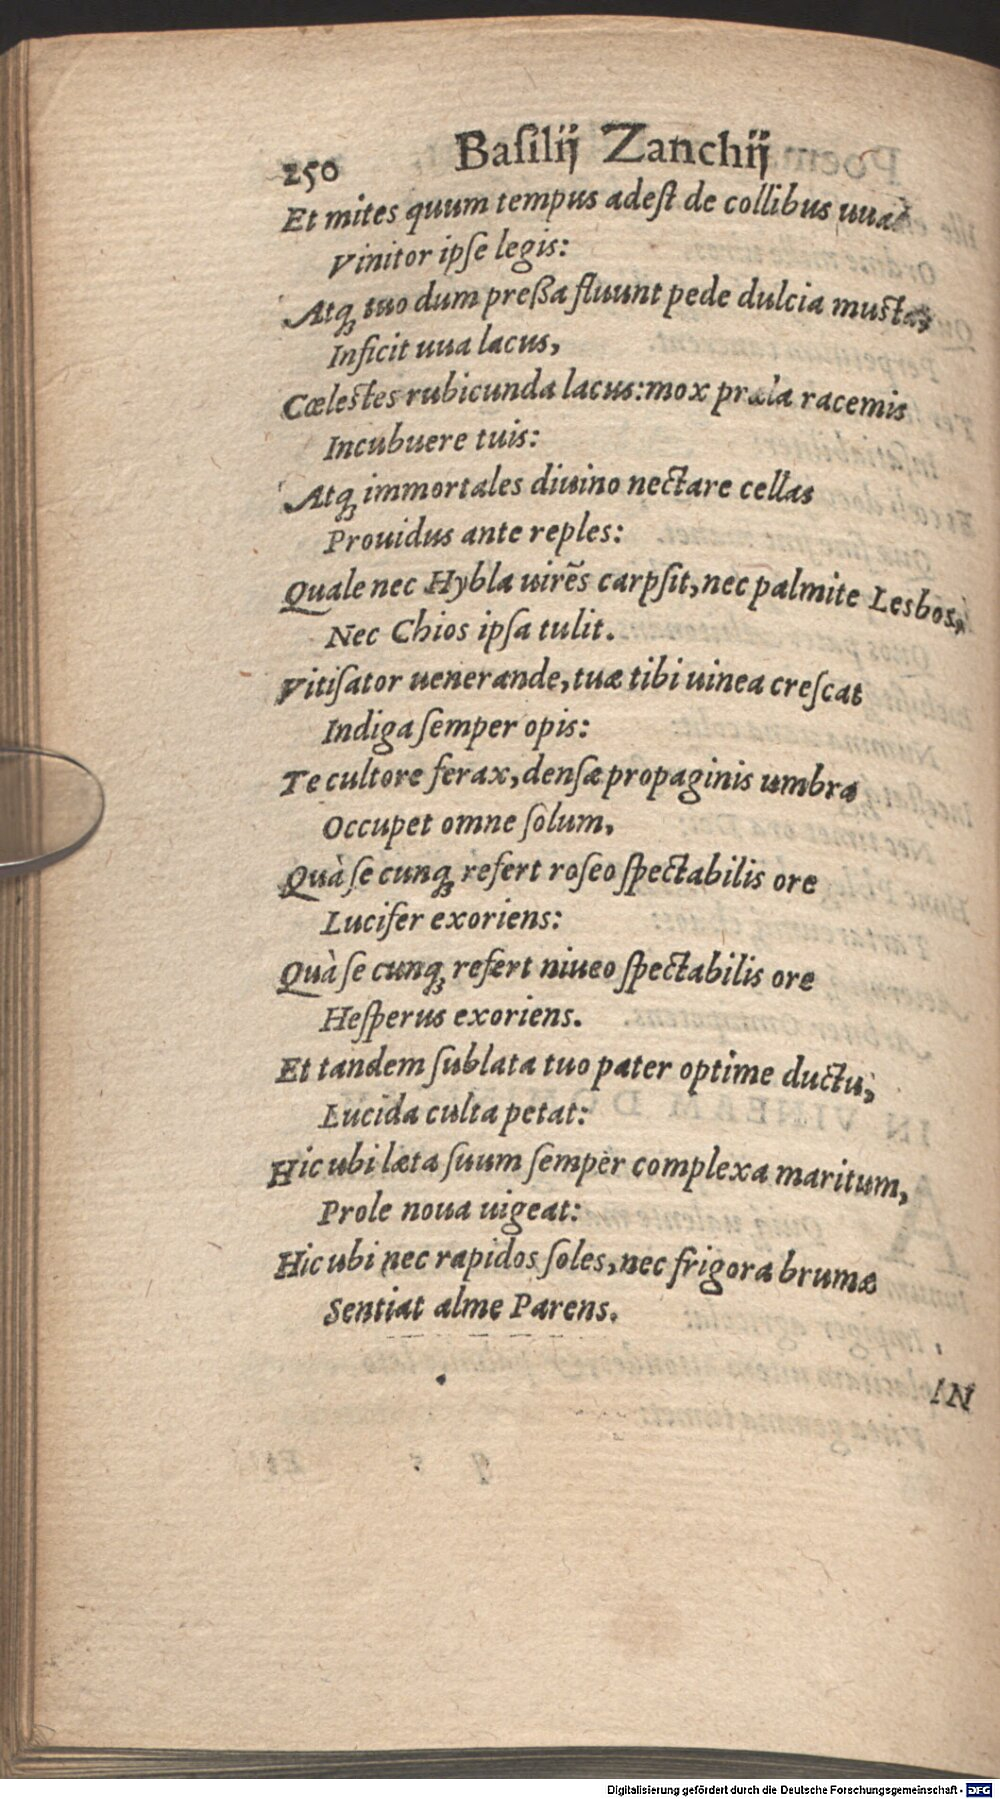 250 Baſilij Zanchij
Et mites quum tempus adeſt de collibus uuas
Vinitor ipſe legis:
Atqꝫ tuo dum preßa fluunt pede dulcia muſta,
Inficit uua lacus,
Cœleſtes rubicunda lacus: mox præla racemis
Incubuere tuis:
Atqꝫ immortales diuino nectare cellas
Prouidus ante reples:
Quale nec Hybla uirẽs carpſit, nec palmite Lesbos,
Nec Chios ipſa tulit.
Vitiſator uenerande, tuæ tibi uinea creſcat
Indiga ſemper opis:
Te cultore ferax, denſæ propaginis umbra
Occupet omne ſolum,
Quà ſe cunqꝫ refert roſeo ſpectabilis ore
Lucifer exoriens:
Quà ſe cunqꝫ refert niueo ſpectabilis ore
Heſperus exoriens.
Et tandem ſublata tuo pater optime ductu,
Lucida culta petat:
Hic ubi læta ſuum ſemper complexa maritum,
Prole noua uigeat:
Hic ubi nec rapidos ſoles, nec frigora brumæ
Sentiat alme Parens.
IN
Digitalisierung gefördert durch die Deutsche Forschungsgemeinschaft - DFG